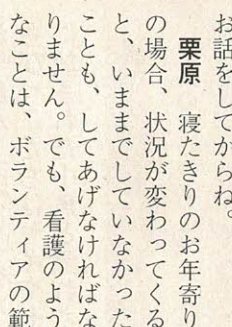 お話をしてからね。
栗原　寝たきりのお年寄り
の場合、状況が変わってくる
と、いままでしていなかった
ことも、してあげなければな
りません。でも、看護のよう
なことは、ボランティアの範